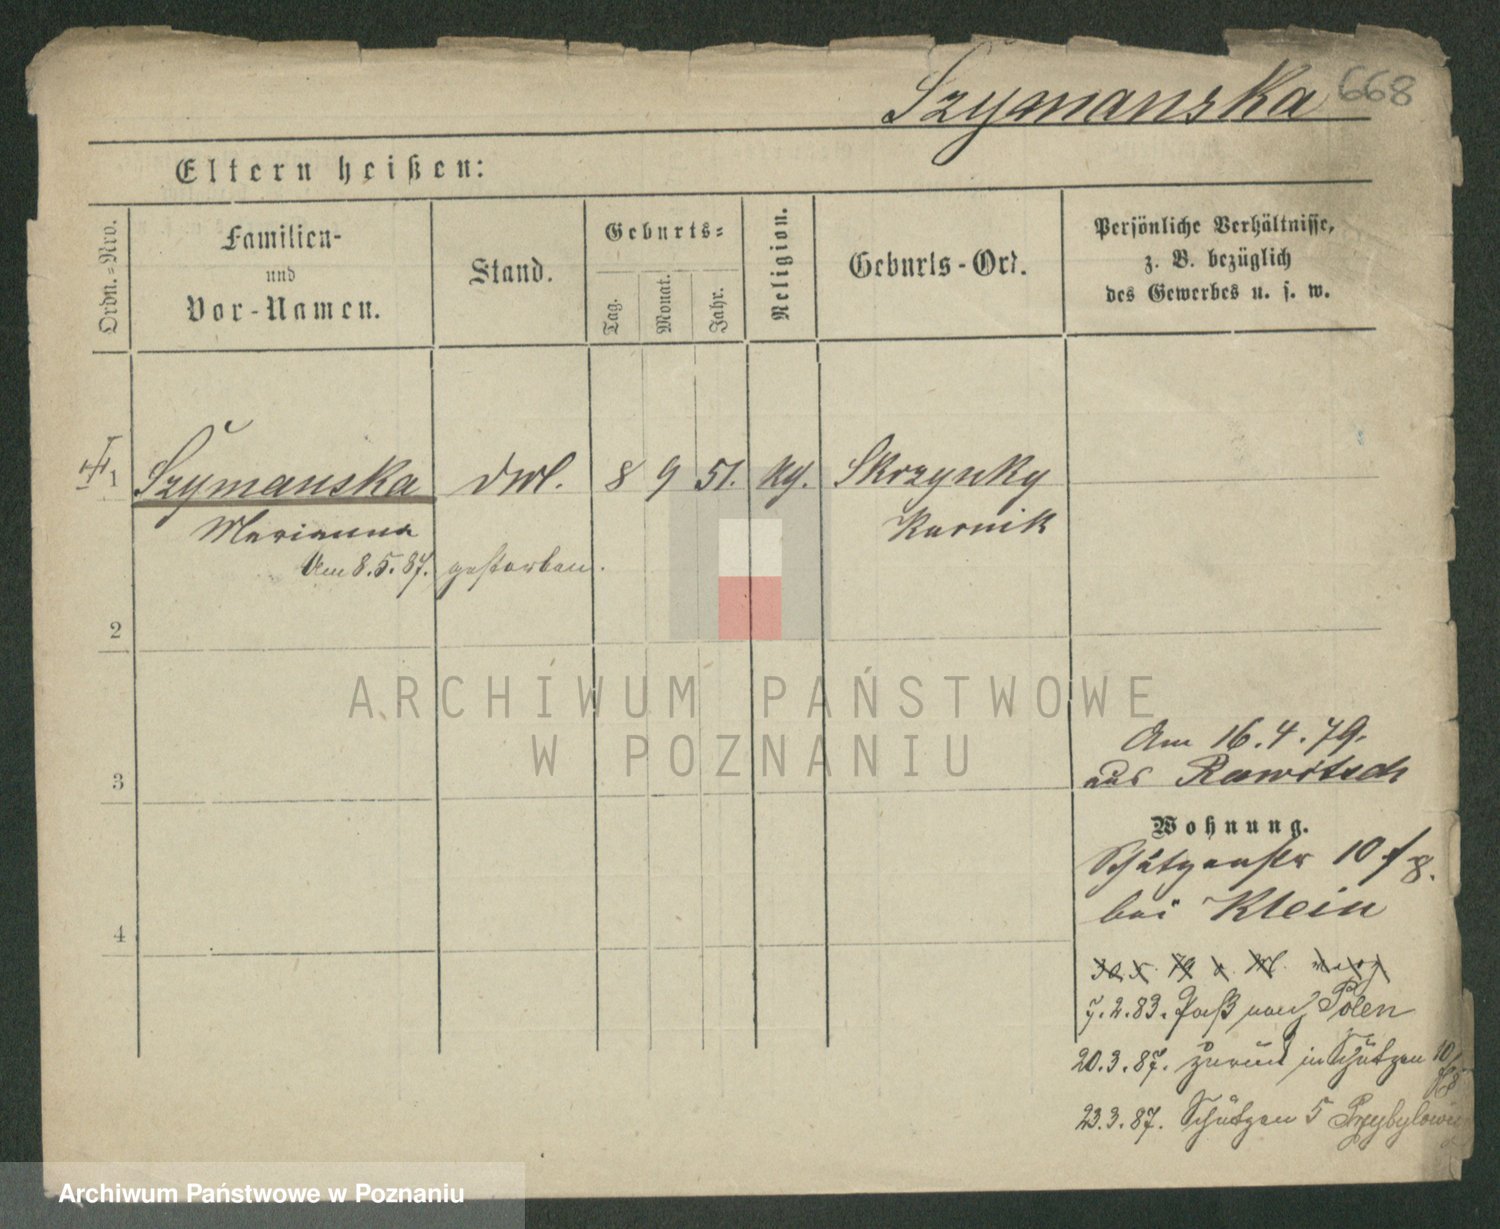 Szymanska 668
Eltern heißen:
Ordn.=Nro.
Familien-
und
Vor-Namen.
Stand.
Geburts=
Tag.
Monat.
Jahr.
Religion.
Geburts-Ort.
Persönliche Verhältnisse,
z. B. bezüglich
des Gewerbes u. s. w.
1 Szymanska 8 9 51. Skrzynky
Marianna Kurnik
Am 8.5.87. gestorben.
2
3
4
Am 16.4.79.
aus Rawitsch
Wohnung.
Schützenstr 10
bei Klein
7.2.83. Paß nach Polen
20.3.87. zurück in Schützen 10
23.3.87. Schützen 5
ARCHIWUM PAŃSTWOWE
W POZNANIU
Archiwum Państwowe w Poznaniu